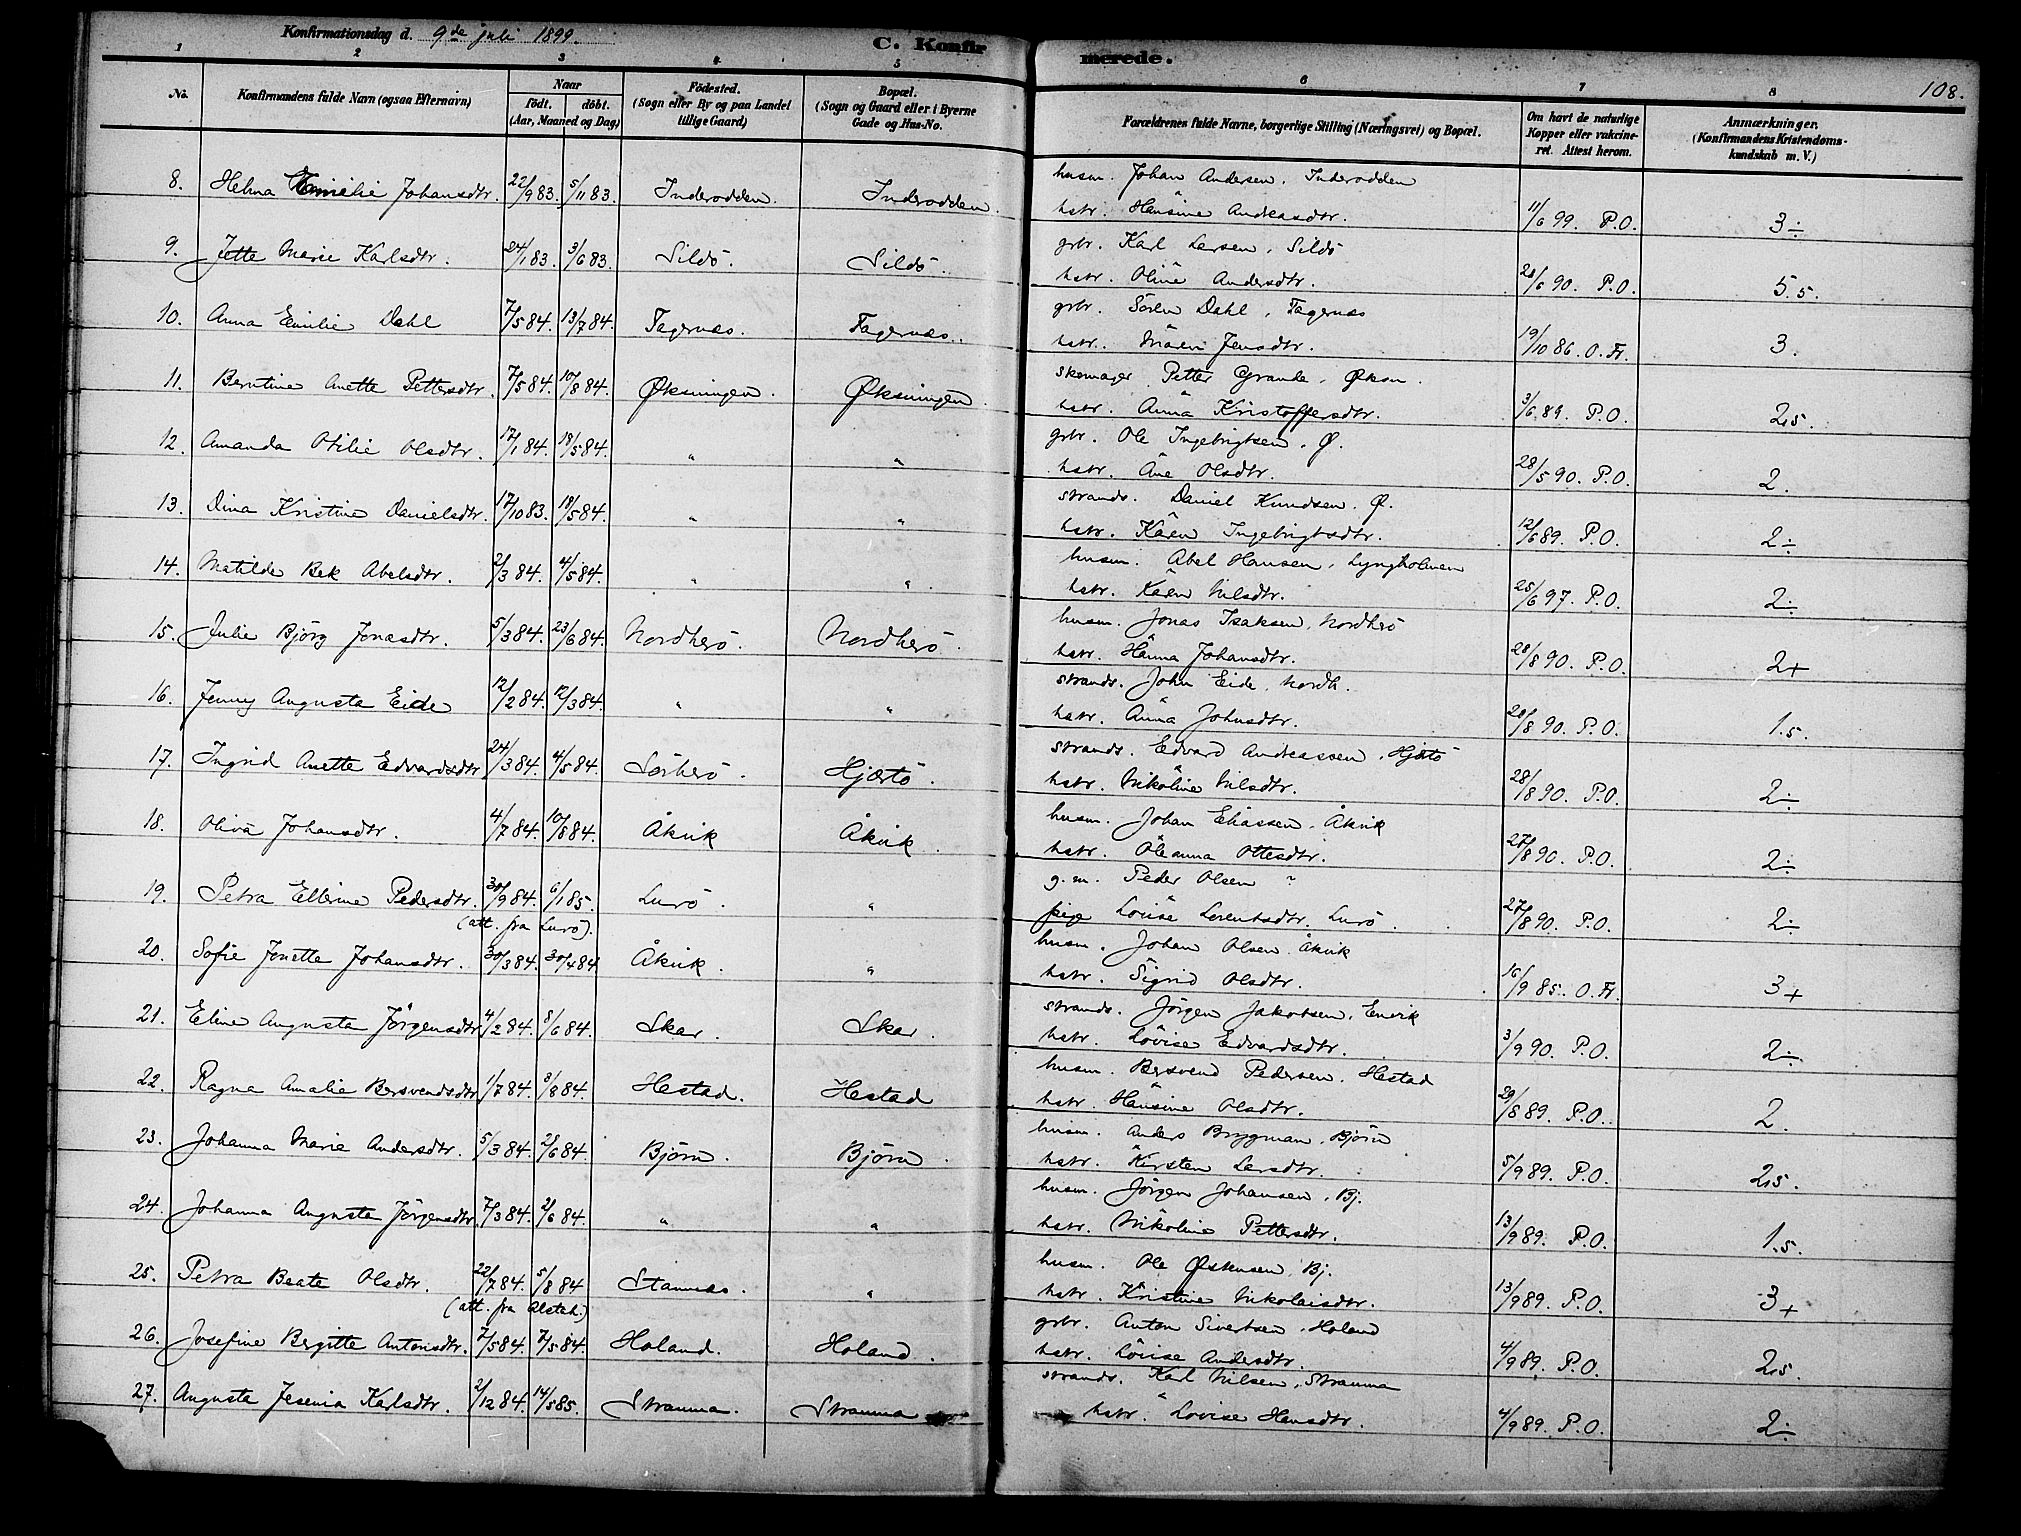 Konfirmationsdag d. 9de juli 1899.
C. Konfirmerede.
108.
1 2 3 4 5 6 7 8
No. Konfirmandens fulde Navn (ogsaa Efternavn) Naar födt. döbt. (Aar, Maaned og Dag) Födested. (Sogn eller By og paa Landet tillige Gaard) Bopæl. (Sogn og Gaard eller i Byerne Gade og Hus-No. Forældrenes fulde Navne, borgerlige Stilling (Næringsvei) og Bopæl. Om havt de naturlige Kopper eller vakcineret. Attest herom. Anmærkninger. (Konfirmandens Kristendomskundskab m. V.)
husm. Johan Andersen. Inderodden
8. Helma Emilie Johansdtr. 22/9 83. 5/11 83. Inderodden. Inderodden. hstr. Hansine Andreasdtr. 11/6 99. P.O. 3÷
grbr. Karl Larsen, Sildö
9. Jette Marie Karlsdtr. 24/1 83. 3/6 83. Sildö. Sildö. hstr. Oline Andersdtr. 28/6 90. P.O. 5.5.
grbr. Sören Dahl, Fagernæs
10. Anna Emilie Dahl 7/5 84. 13/7 84. Fagernæs. Fagernæs. hstr. Maren Jensdtr. 19/10 86. O. Fr. 3.
skomager Petter Grande, Øksn.
11. Berntine Anette Pettersdtr. 7/5 84. 10/8 84. Øksningen. Øksningen. hstr. Anna Kristoffersdtr. 3/6 89. P.O. 2,5.
grbr. Ole Ingebrigtsen, Ø.
12. Amanda Otilie Olsdtr. 17/1 84. 18/5 84. " " hstr. Ane Olsdtr. 28/5 90. P.O. 2.
strands. Daniel Knudsen. Ø.
13. Dina Kristine Danielsdtr. 17/10 83. 18/5 84. " " hstr. Karen Ingebrigtsdtr. 12/6 89. P.O. 2÷
husm. Abel Hansen, Lyngholmen
14. Matilde Bek Abelsdtr. 2/3 84. 4/5 84. " " hstr. Karen Nilsdtr. 25/6 97. P.O. 2÷
husm. Jonas Isaksen, Nordherö
15. Julie Bjørg Jonasdtr. 5/3 84. 23/6 84. Nordherö. Nordherö. hstr. Hanna Johansdtr. 28/8 90. P.O. 2+
strands. John Eide, Nordh.
16. Jenny Augusta Eide 12/2 84. 12/3 84. " " hstr. Anna Johnsdtr. 28/8 90. P.O. 1.5.
strands. Edvard Andreassen, Hjartö
17. Ingrid Anette Edvardsdtr 24/3 84. 4/5 84. Sörherö. Hjartö. hstr. Nikoline Nilsdtr. 28/8 90. P.O. 2÷
husm. Johan Eliassen, Åkvik
18. Oliva Johansdtr. 4/7 84. 10/8 84. Åkvik Åkvik. hstr. Oleanna Ottesdtr. 27/8 90. P.O. 2÷
g.m. Peder Olsen "
19. Petra Ellerine Pedersdtr. 30/9 84. 6/1 85. Lurö. " pige Lovise Lorentsdtr. Lurö. 27/8 90. P.O. 2÷
(att. fra Lurö).
husm. Johan Olsen. Åkvik
20. Sofie Jonette Johansdtr. 30/3 84. 30/4 84 Åkvik. " hstr. Sigrid Olsdtr. 16/9 85. O. Fr. 3+
strands. Jörgen Jakobsen, Envik
21. Eline Augusta Jörgensdtr 4/2 84. 8/6 84. Skar. Skar. hstr. Lovise Edvardsdtr. 3/9 90. P.O. 2÷
husm. Bersvend Pedersen. Hestad
22. Ragna Amalie Bersvendsdtr 1/7 84. 3/8 84. Hestad. Hestad hstr. Hansine Olsdtr. 29/8 89. P.O. 2.
husm. Anders Brygman, Bjørn
23. Johanna Marie Andersdtr. 5/3 84. 2/6 84. Bjørn. Bjørn. hstr. Kirsten Larsdtr. 5/9 89. P.O. 2,5.
husm. Jörgen Johansen, Bj.
24. Johanna Augusta Jörgensdtr. 7/3 84. 2/6 84. " " hstr. Nikoline Pettersdtr. 13/9 89. P.O. 1.5.
husm. Ole Østensen, Bj.
25. Petra Beate Olsdtr. 22/7 84. 5/8 84 Stamnæs. " hstr. Kristine Nikolaisdtr. 13/9 89. P.O. 3+
(att. fra Alstah.)
grbr. Anton Sivertsen, Holand
26. Josefine Bergitte Antonsdtr. 7/5 84. 7/5 84. Holand. Holand. hstr. Lovise Andersdtr. 4/9 89. P.O. 2,5
strands. Karl Nilsen, Strauma
27. Augusta Jesenia Karlsdtr. 2/12 84. 14/5 85. Strauma. Strauma hstr. Lovise Hansdtr. 4/9 89. P.O. 2÷